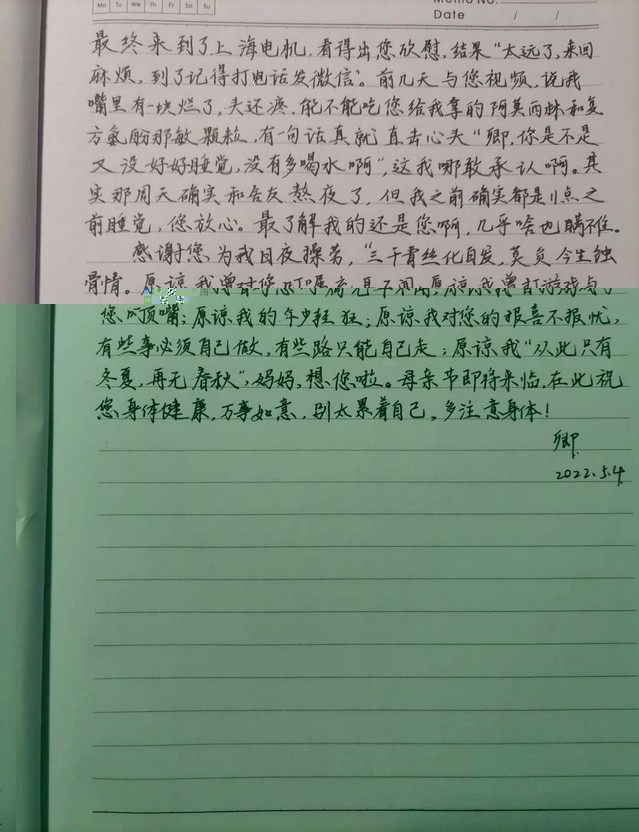 Mo Tu We Th Fr Sa Su
Memo No.
Date / /
最终来到了上海电机,看得出您欣慰,结果“太远了,来回
麻烦,到了记得打电话发微信”。前几天与您视频,说我
嘴里有一块烂了,头还疼,能不能吃您给我拿的阿莫西林和复
方氨酚那敏颗粒,有一句话真就直击心头“卿,你是不是
又没好好睡觉,没有多喝水啊”,这我哪敢承认啊。其
实那周天确实和舍友熬夜了,但我之前确实都是11点之
前睡觉,您放心。最了解我的还是您啊,几乎啥也瞒不住。
感谢您为我日夜操劳,“三千青丝化白发,莫负今生蚀
骨情。原谅我曾对您
您顶嘴;原谅我的年少轻狂;原谅我对您的报喜不报忧,
有些事必须自己做,有些路只能自己走;原谅我“从此只有
冬夏,再无春秋”,妈妈,想您啦。母亲节即将来临,在此祝
您身体健康,万事如意,别太累着自己,多注意身体!
卿
2022.5.4